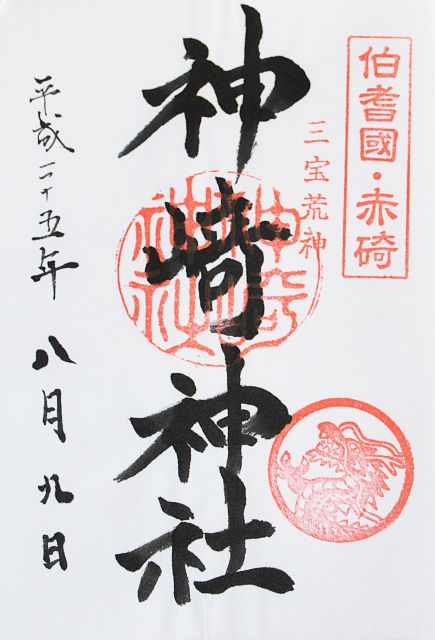 伯耆國・赤碕
三宝荒神
神﨑神社
神﨑神社
平成二十五年 八月 九日